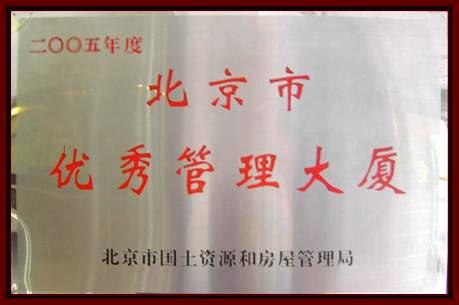 二〇〇五年度
北京市
优秀管理大厦
北京市国土资源和房屋管理局